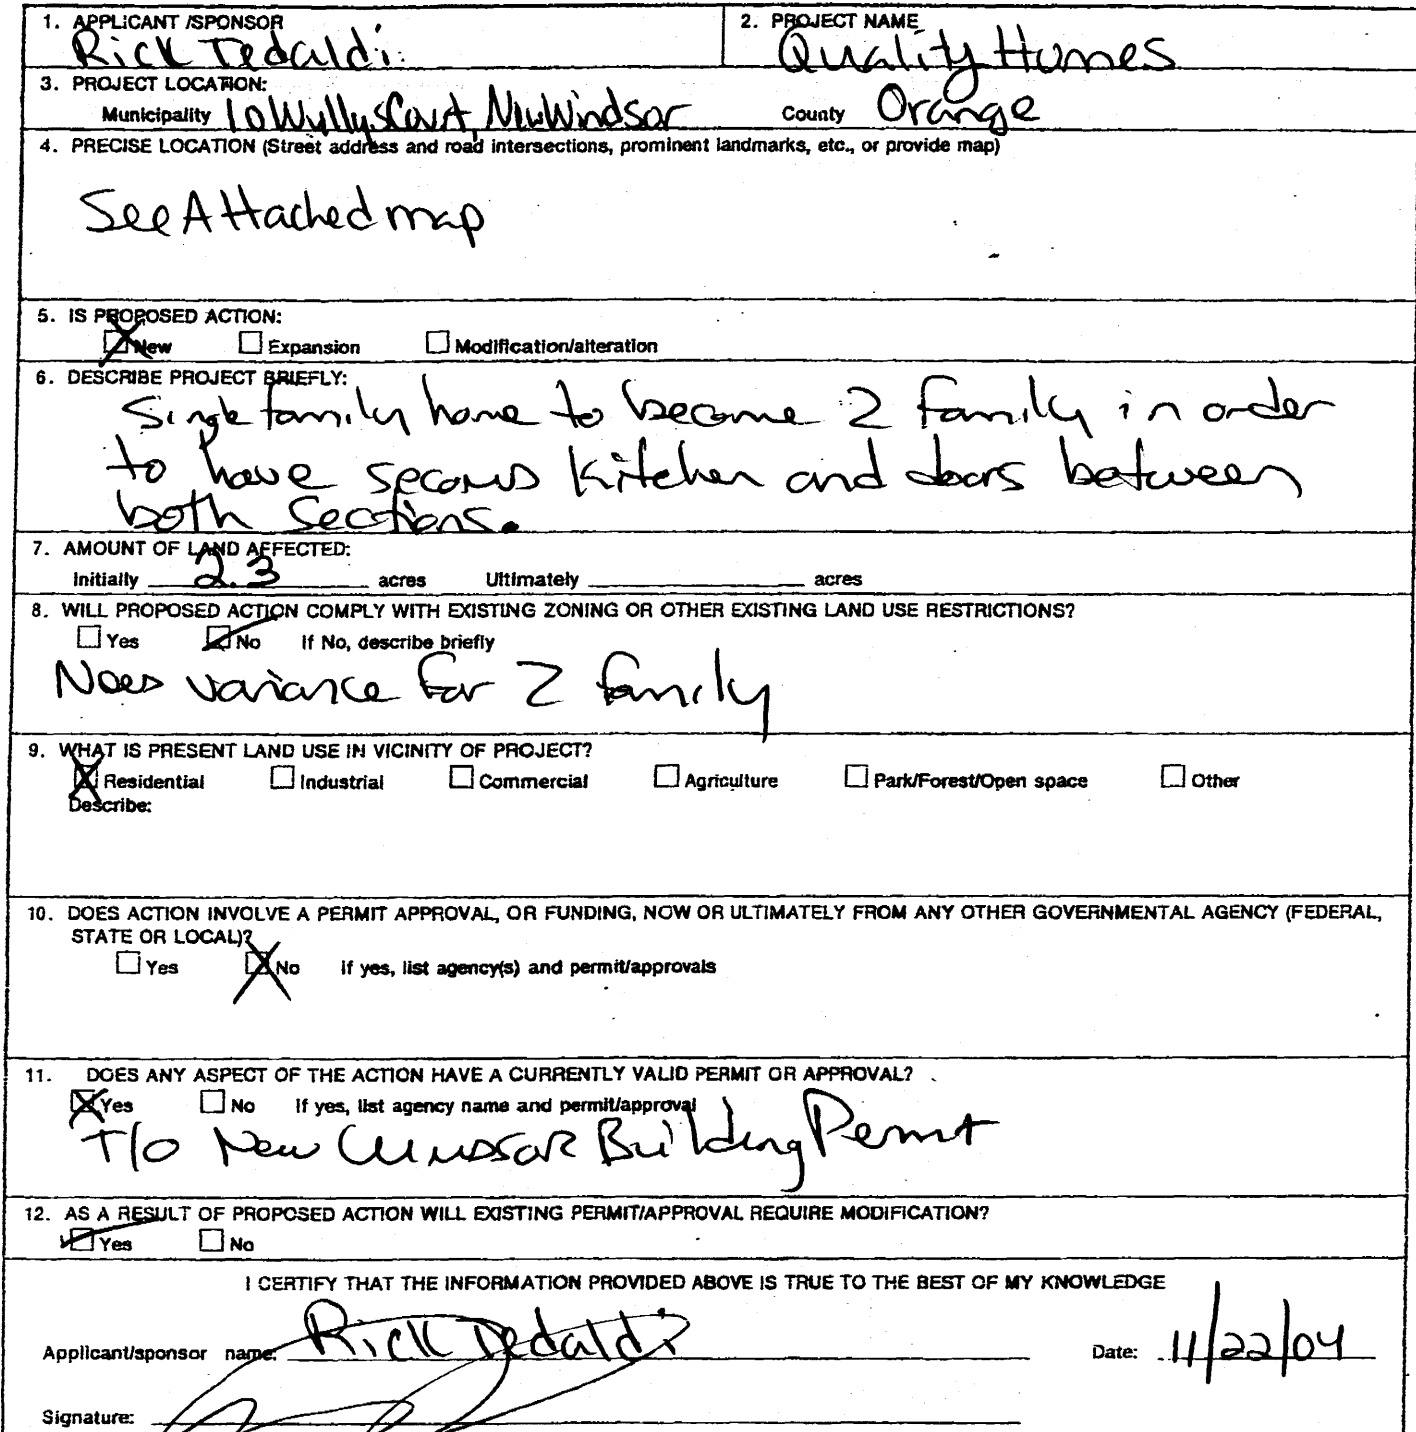 1. APPLICANT /SPONSOR
Rick Tedaldi
2. PROJECT NAME
Quality Homes
3. PROJECT LOCATION:
Municipality 10 Wyllys Court, New Windsor County Orange
4. PRECISE LOCATION (Street address and road intersections, prominent landmarks, etc., or provide map)
See Attached map
5. IS PROPOSED ACTION:
New Expansion Modification/alteration
6. DESCRIBE PROJECT BRIEFLY:
Single family home to become 2 family in order
to have second kitchen and doors between
both sections.
7. AMOUNT OF LAND AFFECTED:
Initially 2.3 acres Ultimately acres
8. WILL PROPOSED ACTION COMPLY WITH EXISTING ZONING OR OTHER EXISTING LAND USE RESTRICTIONS?
Yes No If No, describe briefly
Need variance for 2 family
9. WHAT IS PRESENT LAND USE IN VICINITY OF PROJECT?
Residential Industrial Commercial Agriculture Park/Forest/Open space Other
Describe:
10. DOES ACTION INVOLVE A PERMIT APPROVAL, OR FUNDING, NOW OR ULTIMATELY FROM ANY OTHER GOVERNMENTAL AGENCY (FEDERAL,
STATE OR LOCAL)?
Yes No If yes, list agency(s) and permit/approvals
11. DOES ANY ASPECT OF THE ACTION HAVE A CURRENTLY VALID PERMIT OR APPROVAL?
Yes No If yes, list agency name and permit/approval
T/O New Windsor Building Permit
12. AS A RESULT OF PROPOSED ACTION WILL EXISTING PERMIT/APPROVAL REQUIRE MODIFICATION?
Yes No
I CERTIFY THAT THE INFORMATION PROVIDED ABOVE IS TRUE TO THE BEST OF MY KNOWLEDGE
Applicant/sponsor name: Rick Tedaldi Date: 11/22/04
Signature: